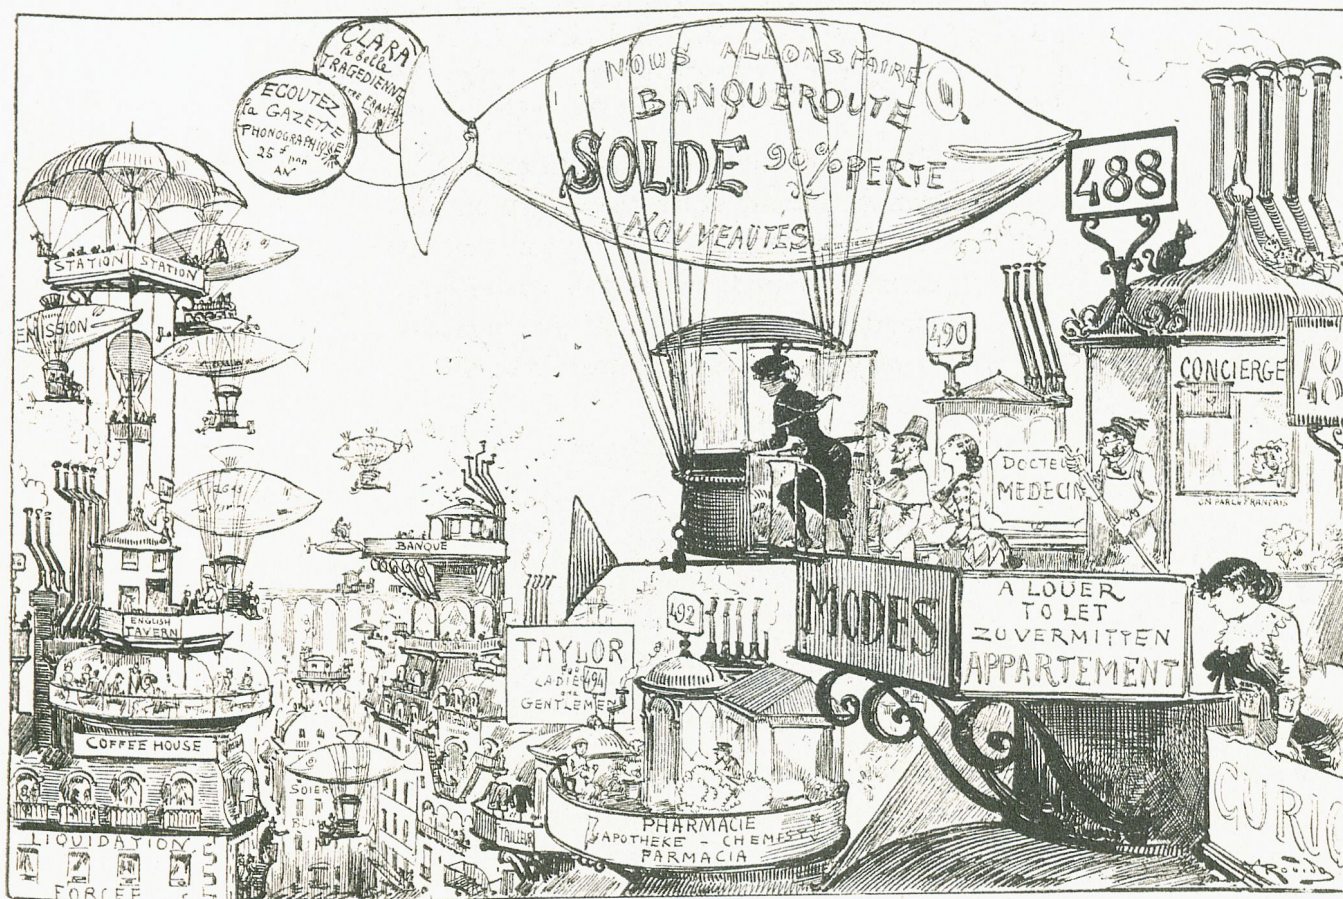 CLARA
la belle
TRAGEDIENNE
ECOUTEZ
la GAZETTE
PHONOGRAPHIQUE
25 f par
AN
NOUS ALLONS FAIRE
BANQUEROUTE
SOLDE 90% PERTE
NOUVEAUTÉS
488
STATION STATION
EMISSION
490
CONCIERGE
48
DOCTEUR
MEDECIN
ON PARLE FRANÇAIS
BANQUE
ENGLISH
TAVERN
COFFEE HOUSE
LIQUIDATION
FORCÉE
SOIER
492
TAYLOR
LADIES
494
GENTLEMEN
MODES
A LOUER
TO LET
ZU VERMITTEN
APPARTEMENT
TAILLEUR
PHARMACIE
APOTHEKE - CHEMIST
FARMACIA
CURIO
A Robida